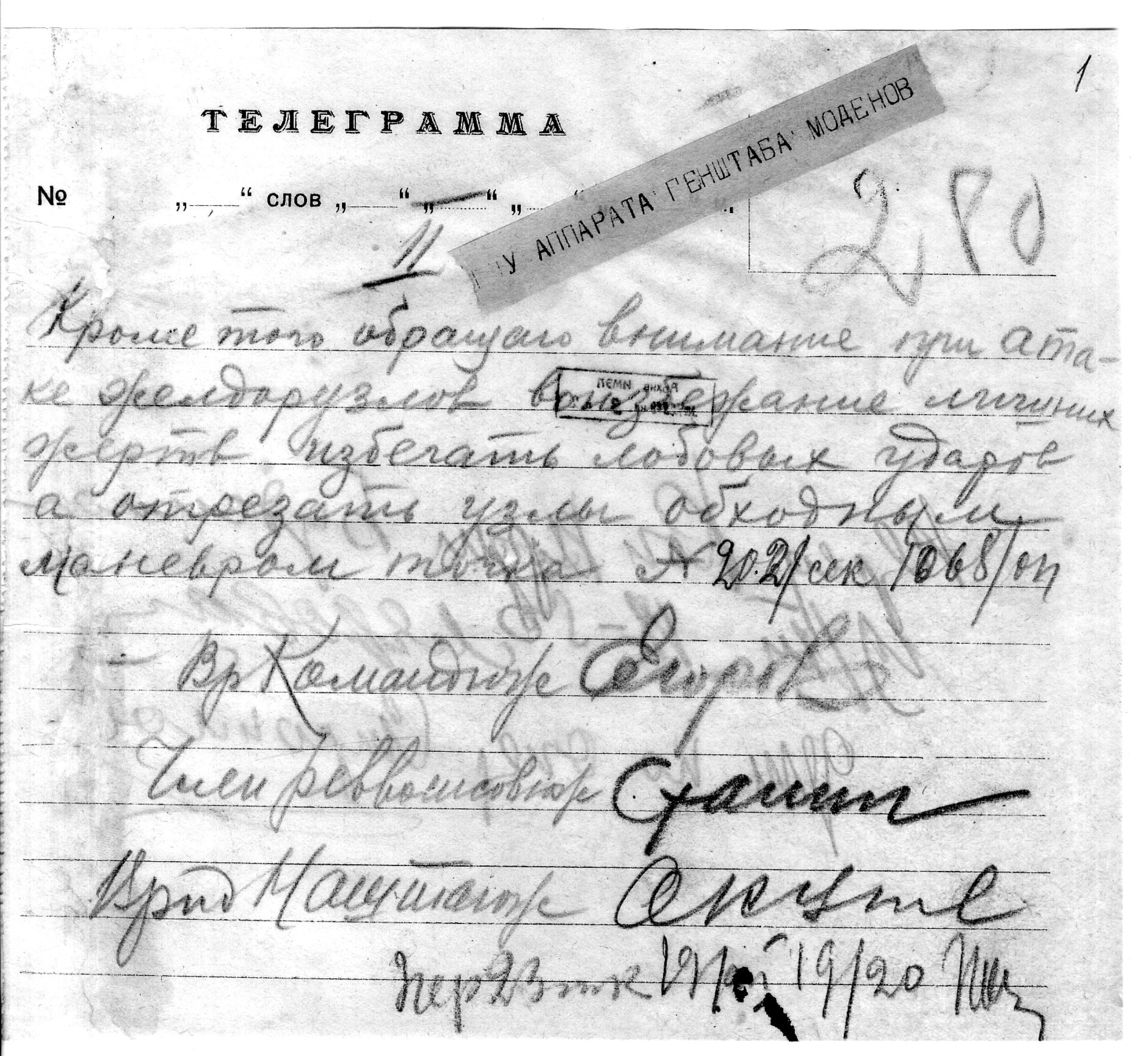 1
ТЕЛЕГРАММА
У АППАРАТА ГЕНШТАБА МОДЕНОВ
№ „ “ слов „ “ „ “ „
11
280
Кроме того обращаю внимание при ата-
ке желдорузлов во избежание личных
жертв избегать лобовых ударов
а отрезать узлы обходным
маневром точка № 202/сек 1068/оп
Вр Командюж Егоров
Член реввоенсовюж Сталин
Врид Наштаюж